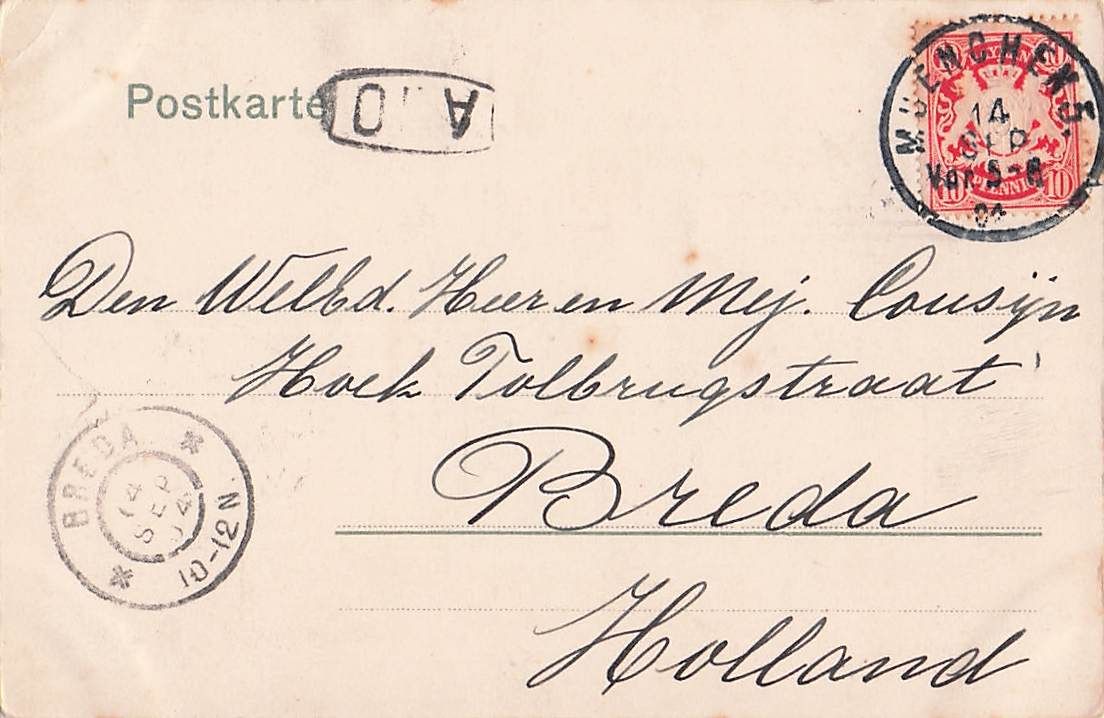 Postkarte
A O
MUENCHEN 5.
14
SEP
Vor. 5-6
04
10 10
10 PFENNIG 10
Den WelEd. Heer en Mej. Cousijn
Hoek Tolbrugstraat
Breda
Holland
BREDA
14
SEP
04
10-12 N.